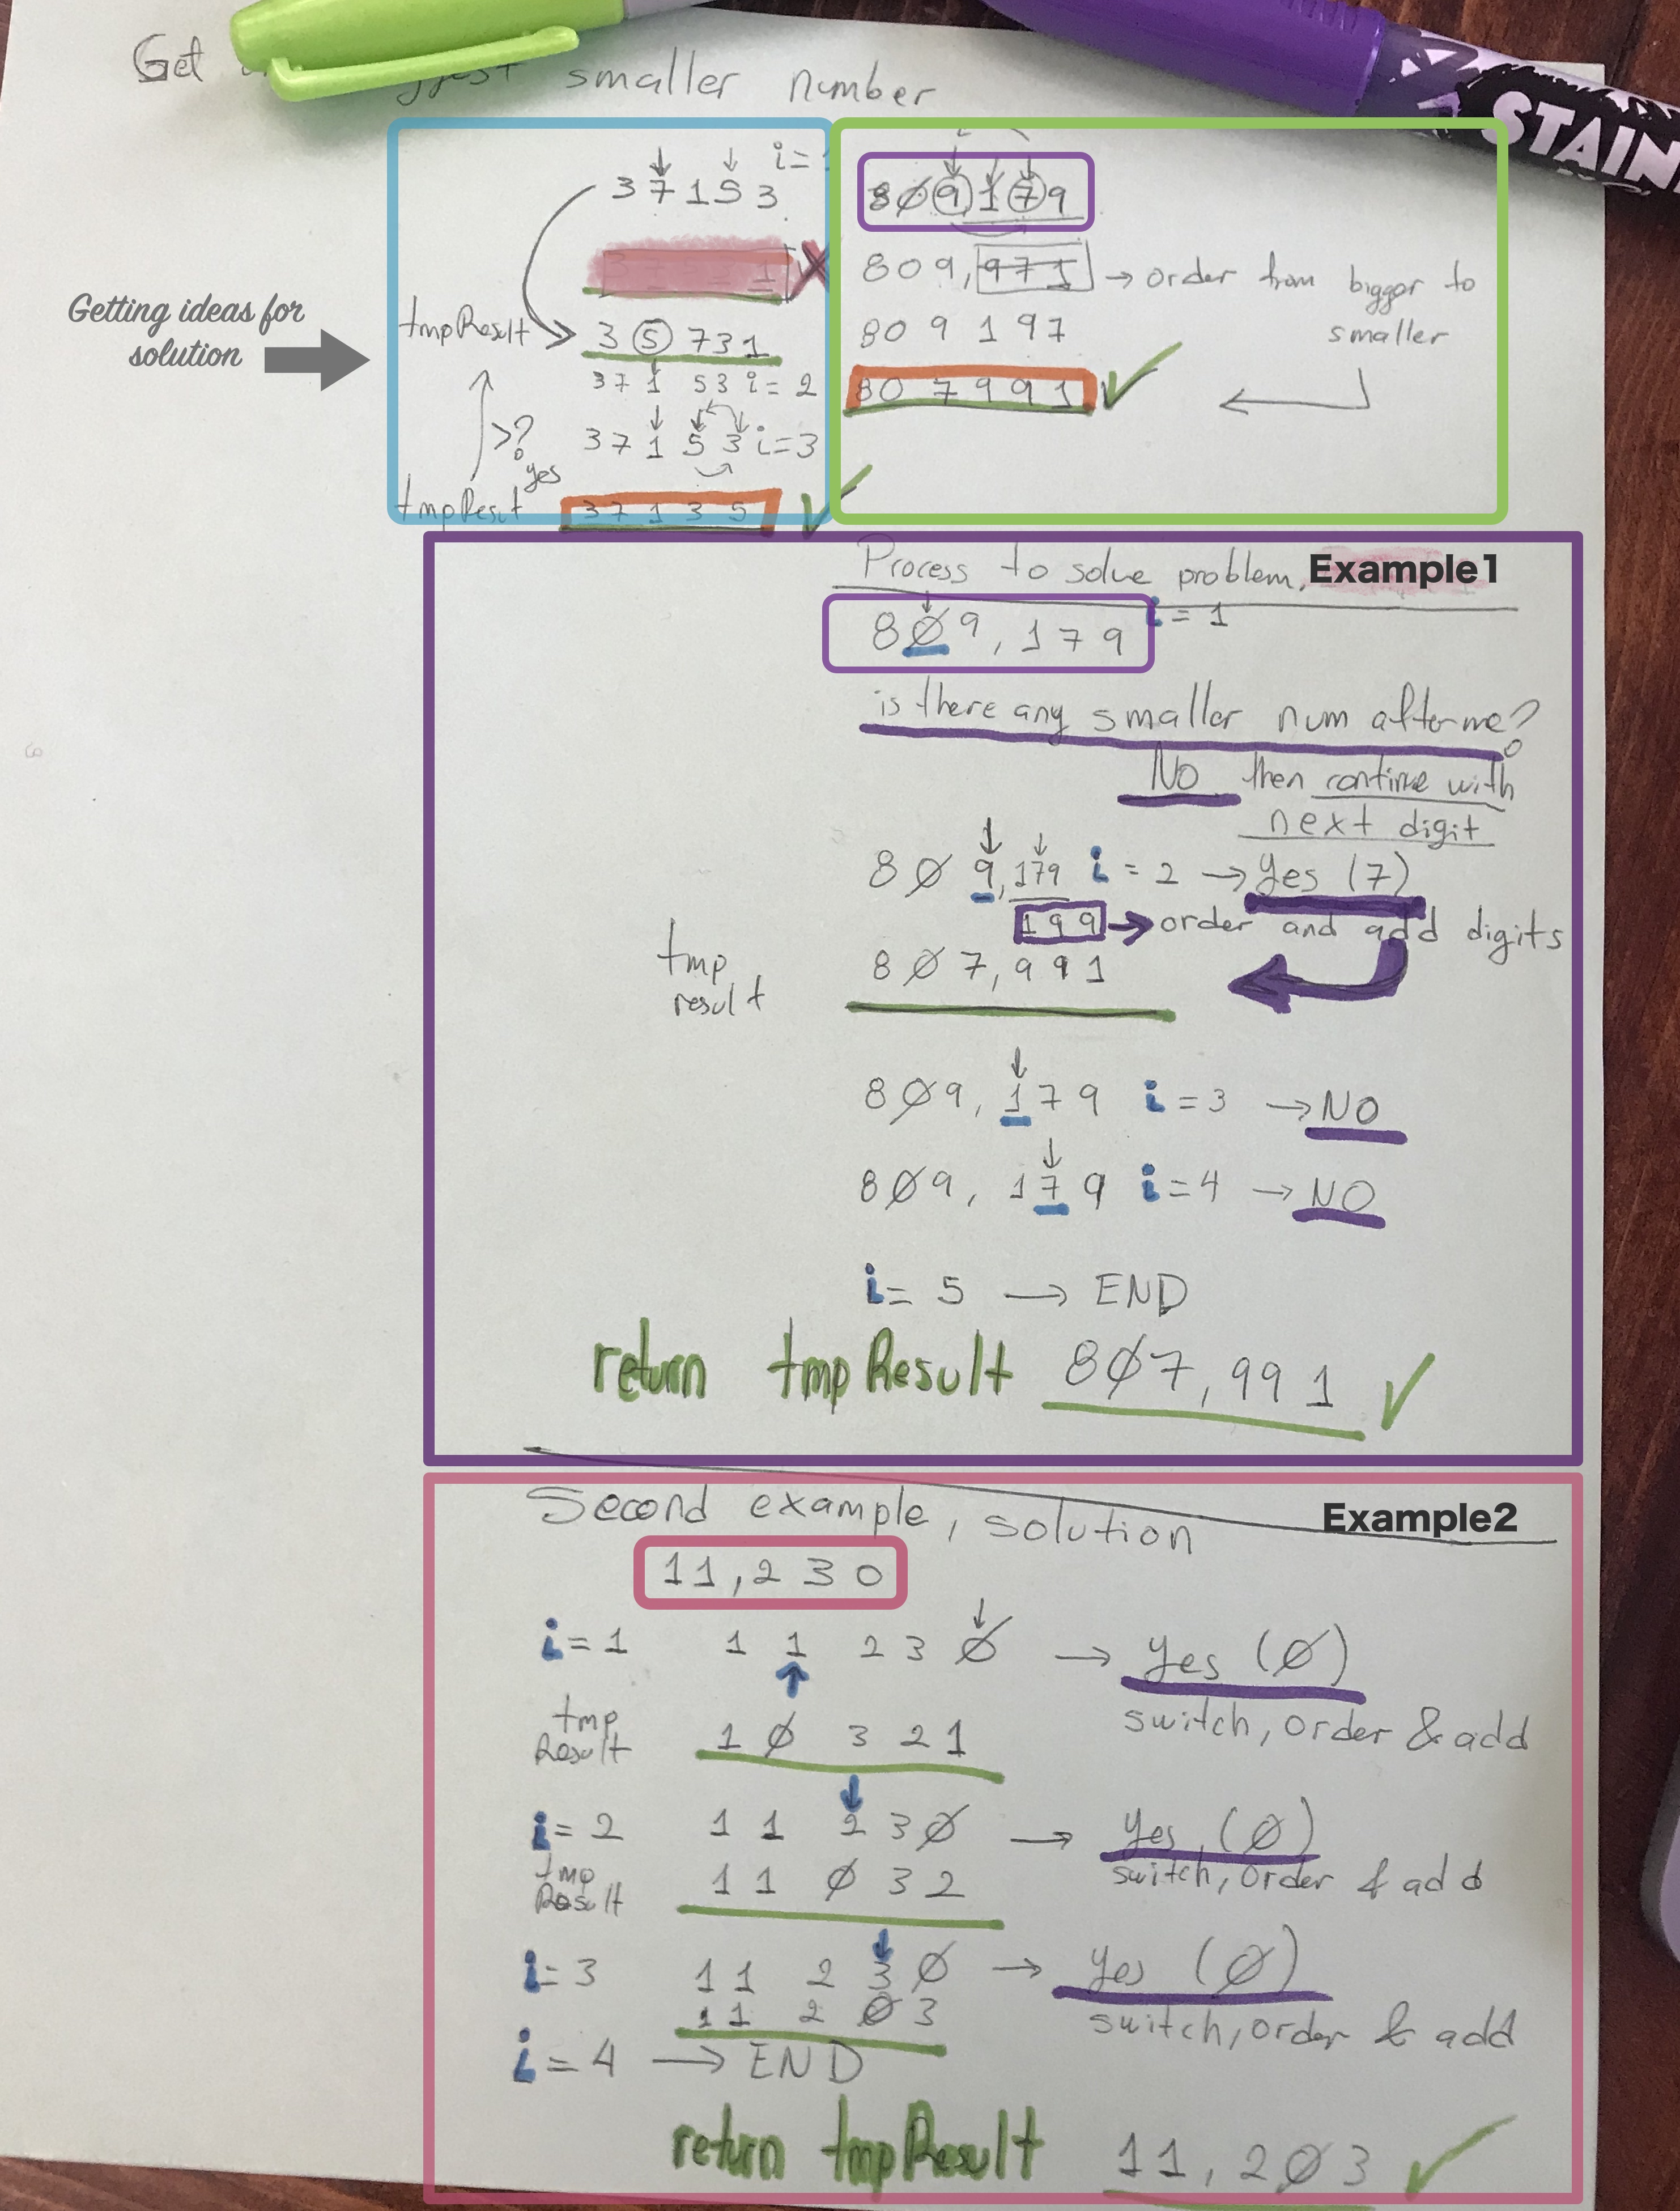 Get smaller number
STAIN
Getting ideas for
solution
i=
3 7 1 5 3
tmpResult
3 5 731
37 1 53 i=2
>?
yes
37 1 5 3 i=3
tmpResut
37 1 3 5
8Ø9,179
809,971 → order from bigger to
smaller
80 9 1 97
80 7 991
Process to solve problem, Example1
8Ø9,179 i=1
is there any smaller num after me?
No then continue with
next digit
8Ø 9,179 i=2 → Yes (7)
199 → order and add digits
tmp
result
8Ø7,991
8Ø9,179 i=3 → NO
8Ø9,179 i=4 → NO
i=5 → END
return tmpResult 8Ø7,991 ✓
Second example, solution
Example2
11,230
i=1 1 1 23Ø → yes (Ø)
switch, order & add
tmp
Result
1Ø 321
i=2 11 23Ø → yes (Ø)
switch, order & add
tmp
Result
11 Ø32
i=3 11 2 3Ø → yes (Ø)
11 2 Ø3
switch, order & add
i=4 → END
return tmpResult 11,2Ø3 ✓